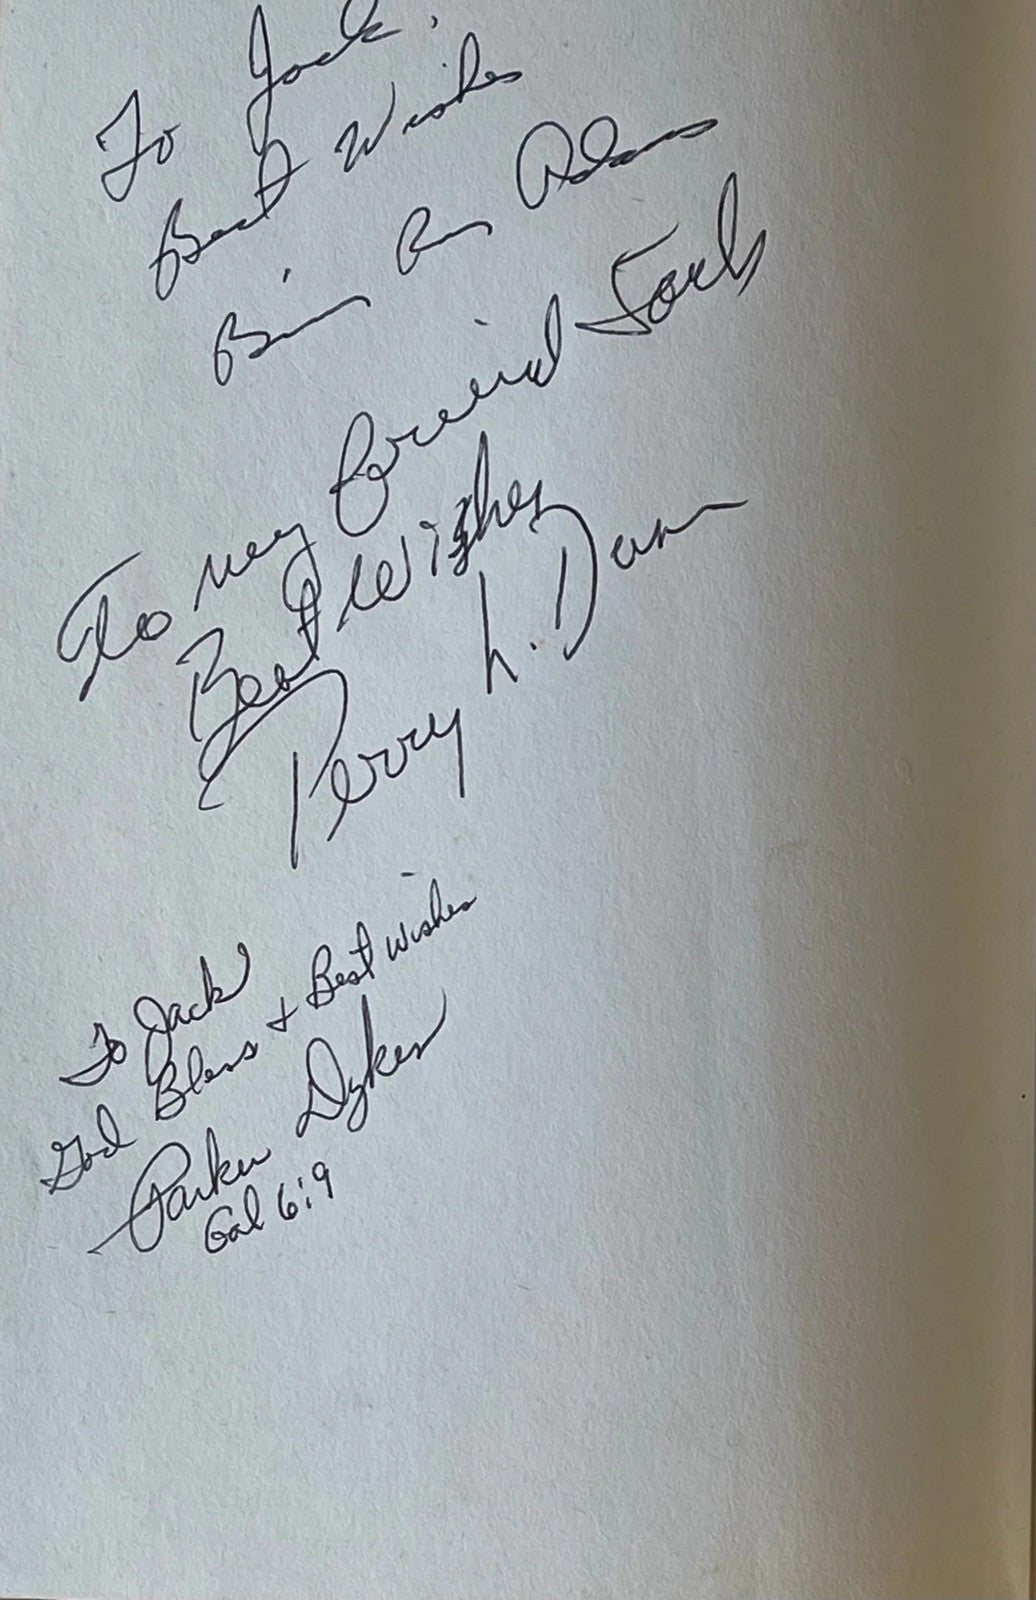 To Jack.
Best Wishes
Brian Ray Adams
To my freind Jack
Best Wishes
Perry L. Dunn
To Jack
God Bless & Best Wishes
Parker Dykes
Gal 6:9